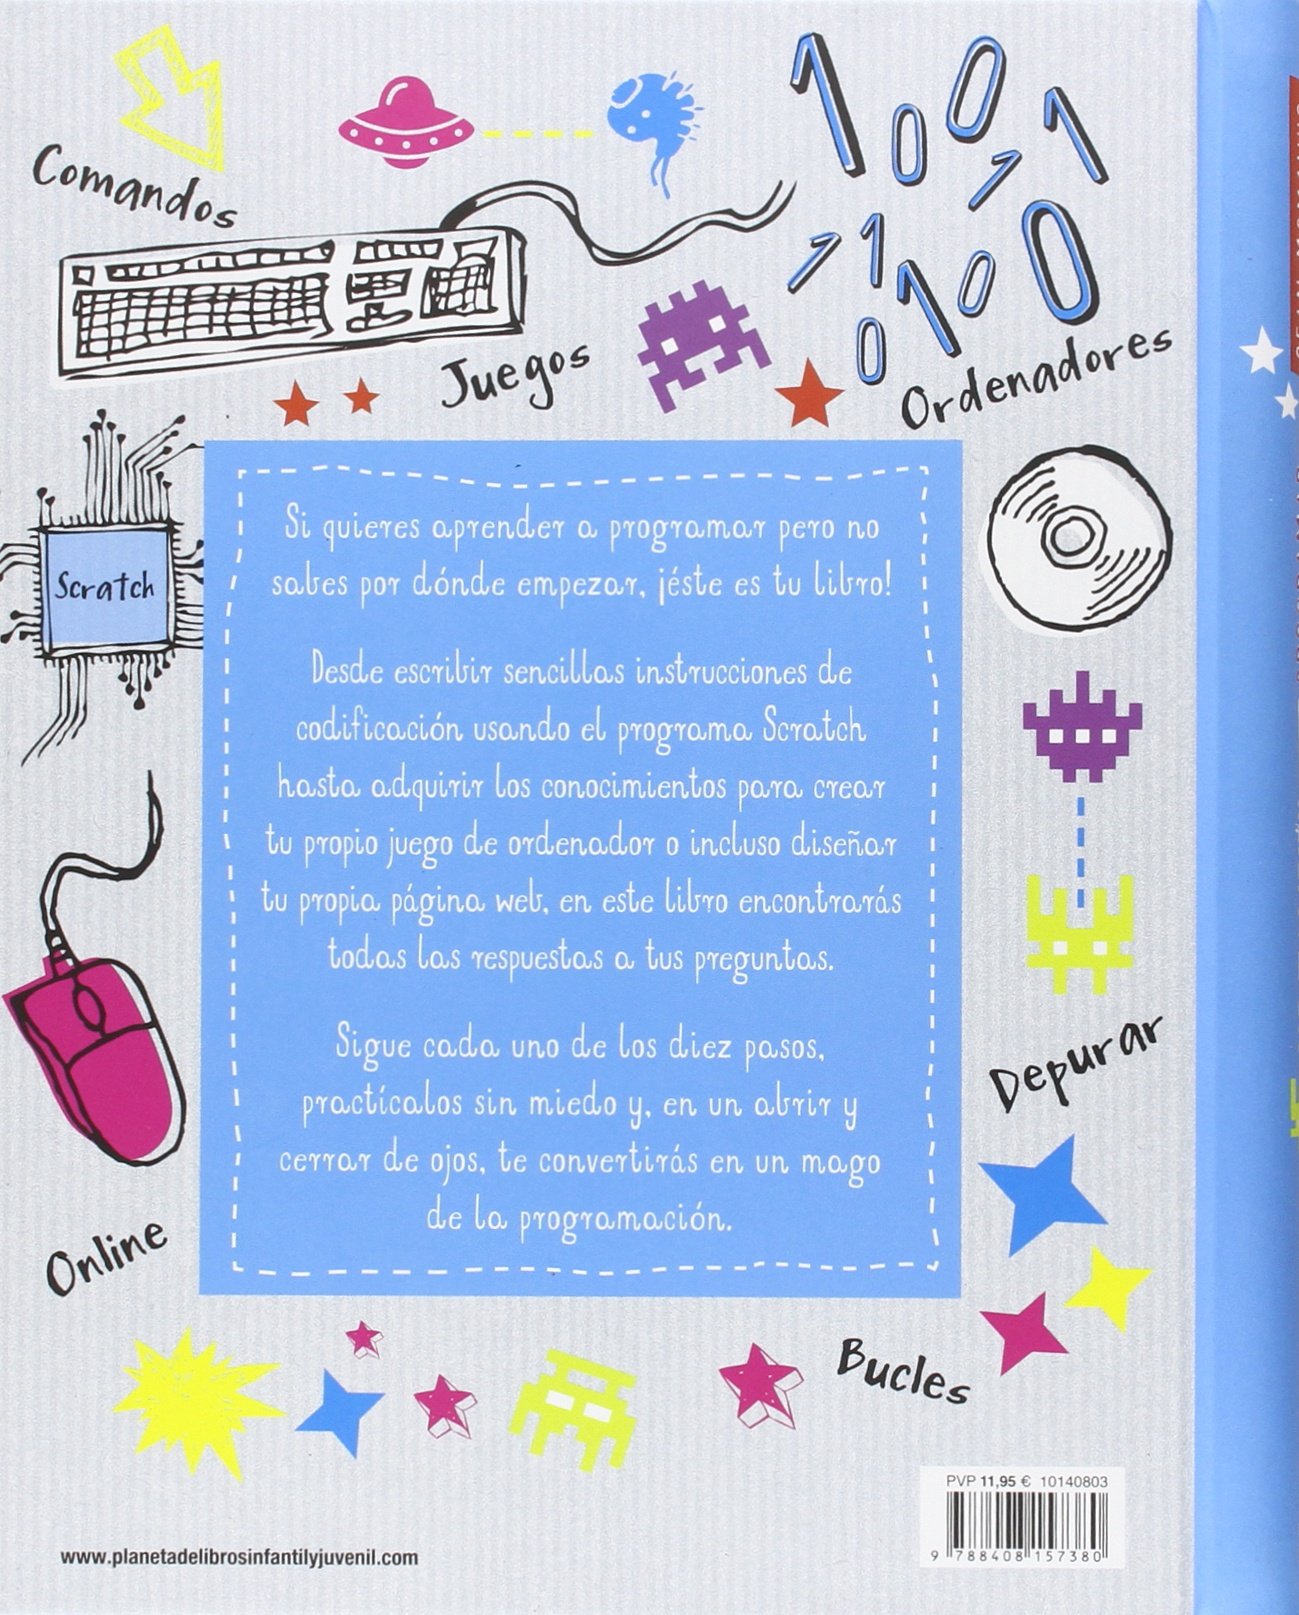 Comandos
1 0 0 1
1 1 1 0 0
1 0
Juegos
Ordenadores
Scratch
Si quieres aprender a programar pero no
sabes por dónde empezar, ¡éste es tu libro!
Desde escribir sencillas instrucciones de
codificación usando el programa Scratch
hasta adquirir los conocimientos para crear
tu propio juego de ordenador o incluso diseñar
tu propia página web, en este libro encontrarás
todas las respuestas a tus preguntas.
Sigue cada uno de los diez pasos,
practícalos sin miedo y, en un abrir y
cerrar de ojos, te convertirás en un mago
de la programación.
Depurar
Online
Bucles
PVP 11,95 € 10140803
9 788408 157380
www.planetadelibrosinfantilyjuvenil.com